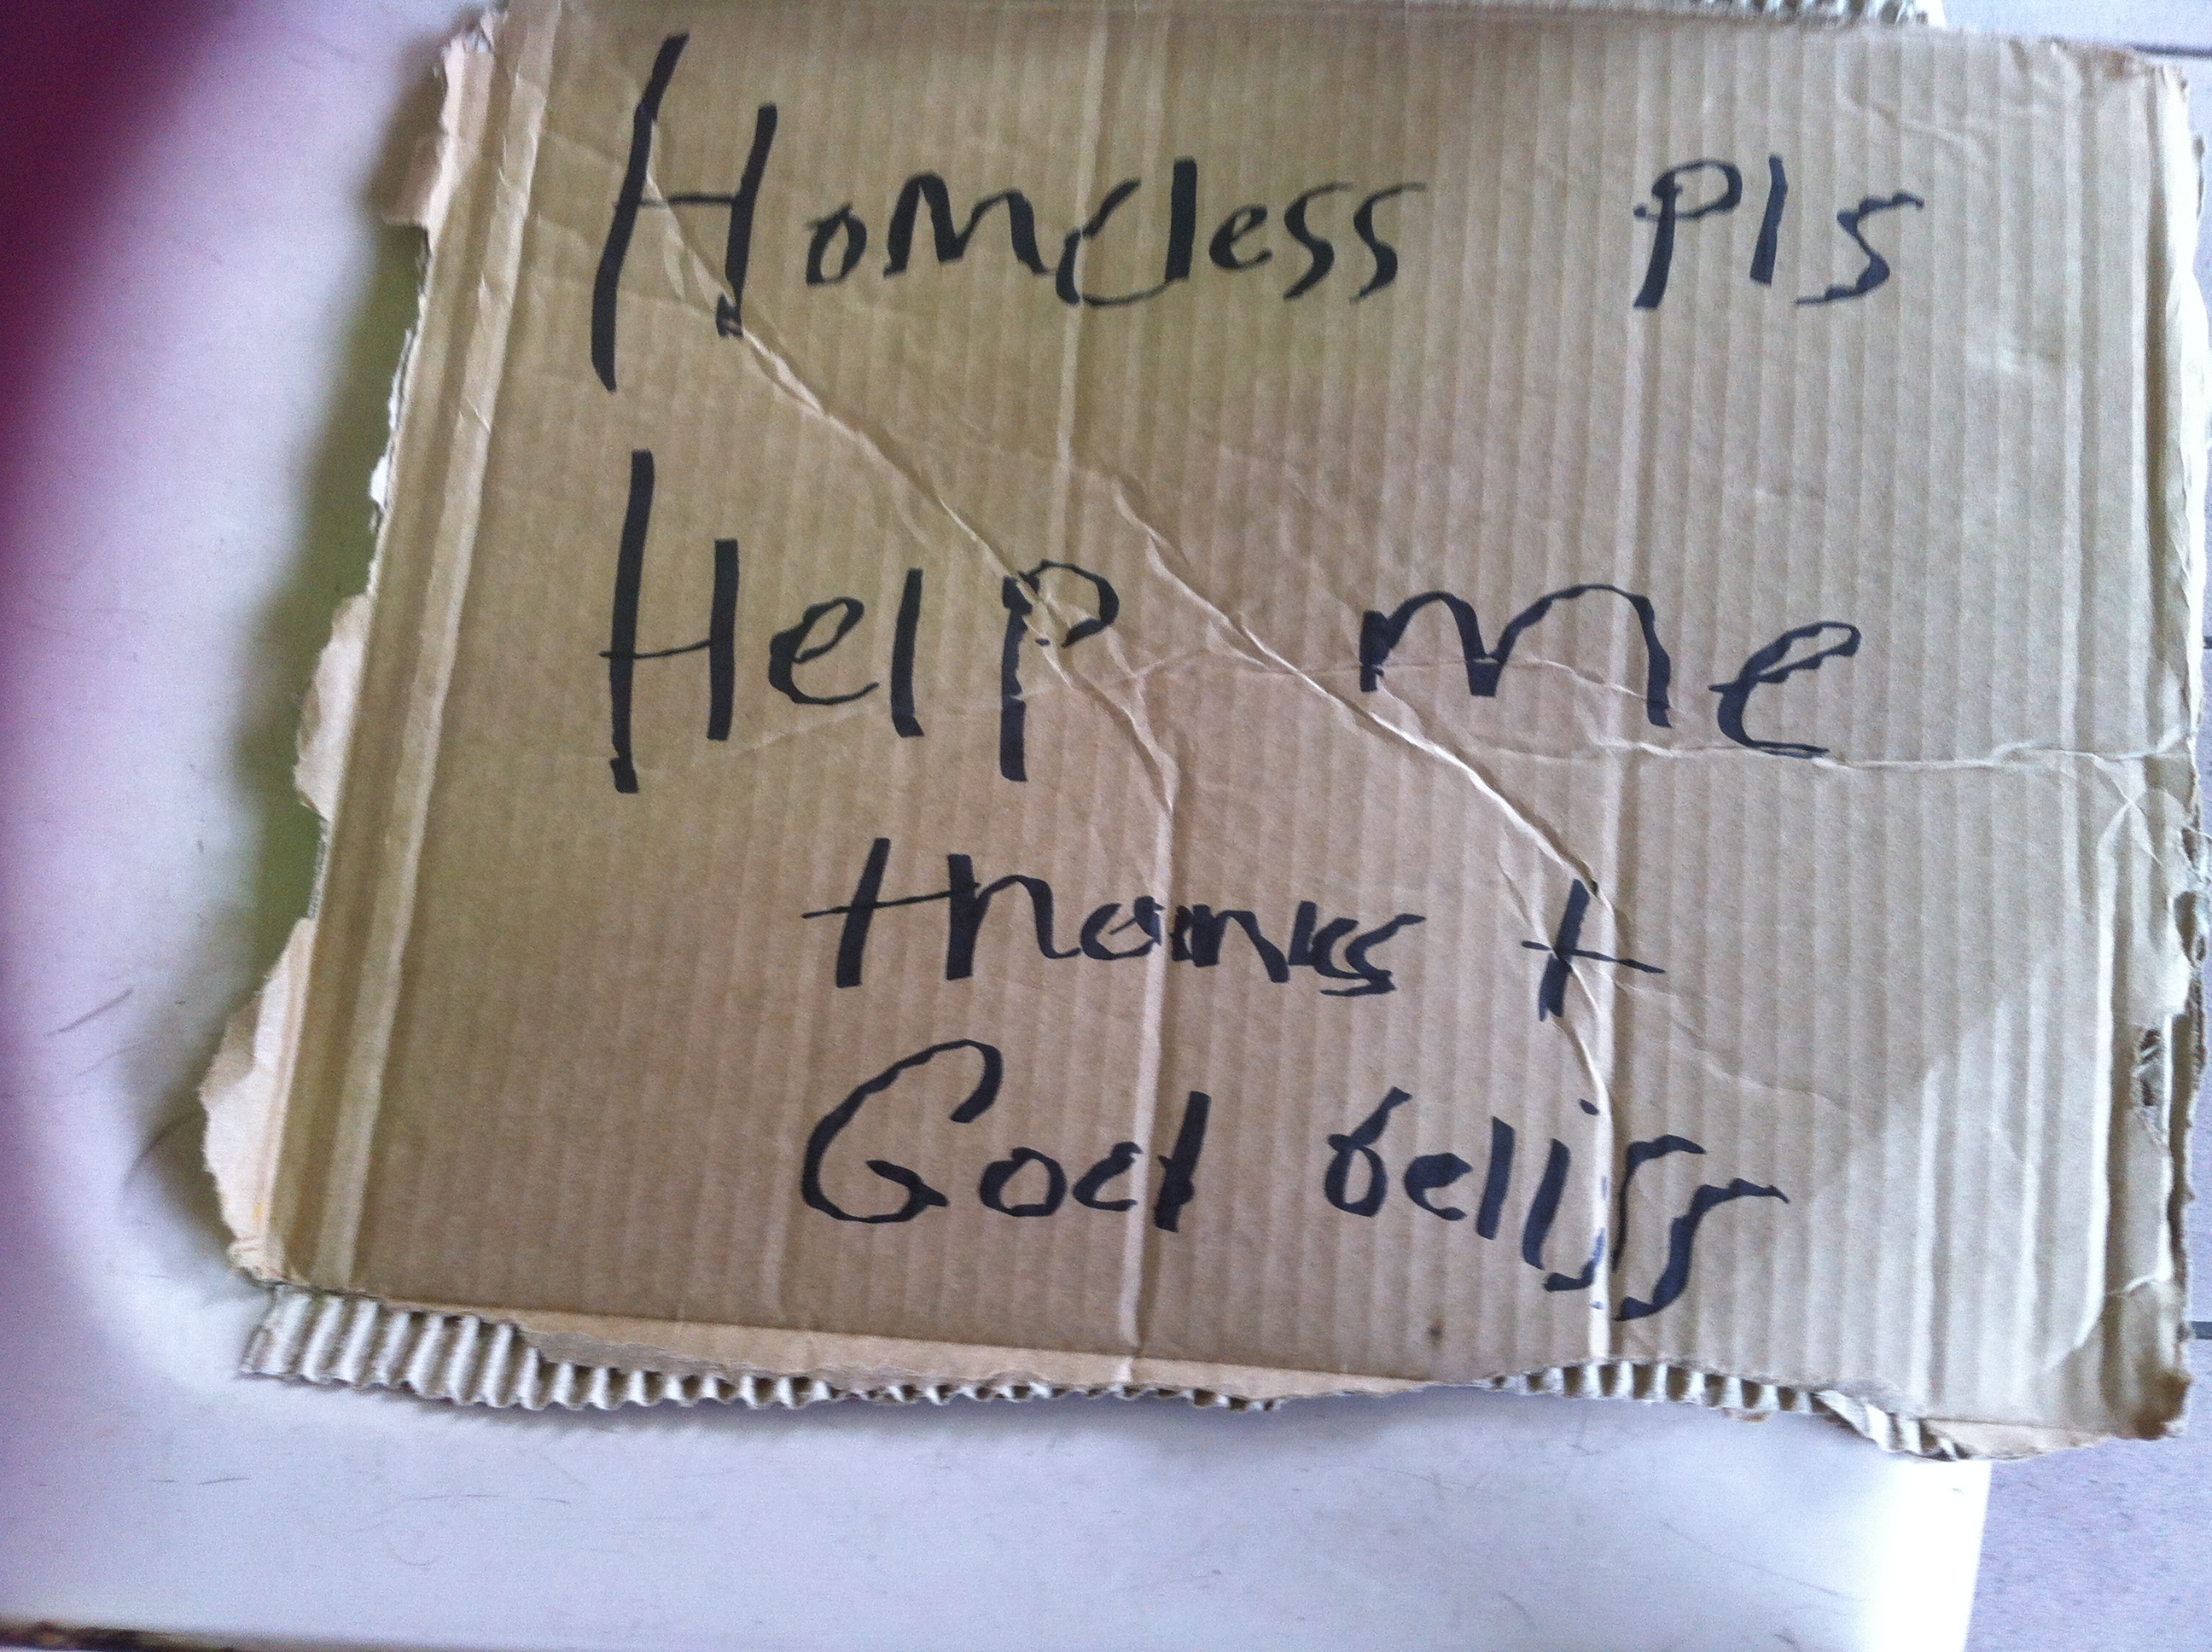 Homeless Pls
Help me
thanks +
God belliss